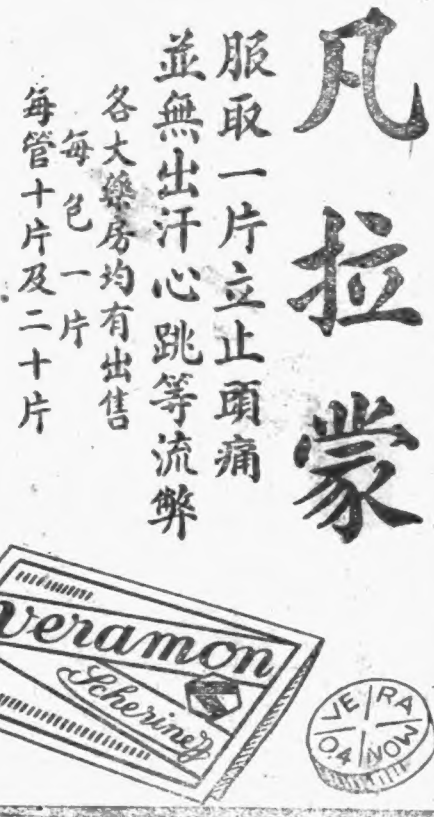 凡拉蒙
服取一片立止頭痛
並無出汗心跳等流弊
各大藥房均有出售
每包一片
每管十片及二十片
veramon
Schering
VE
RA
0.4
MON